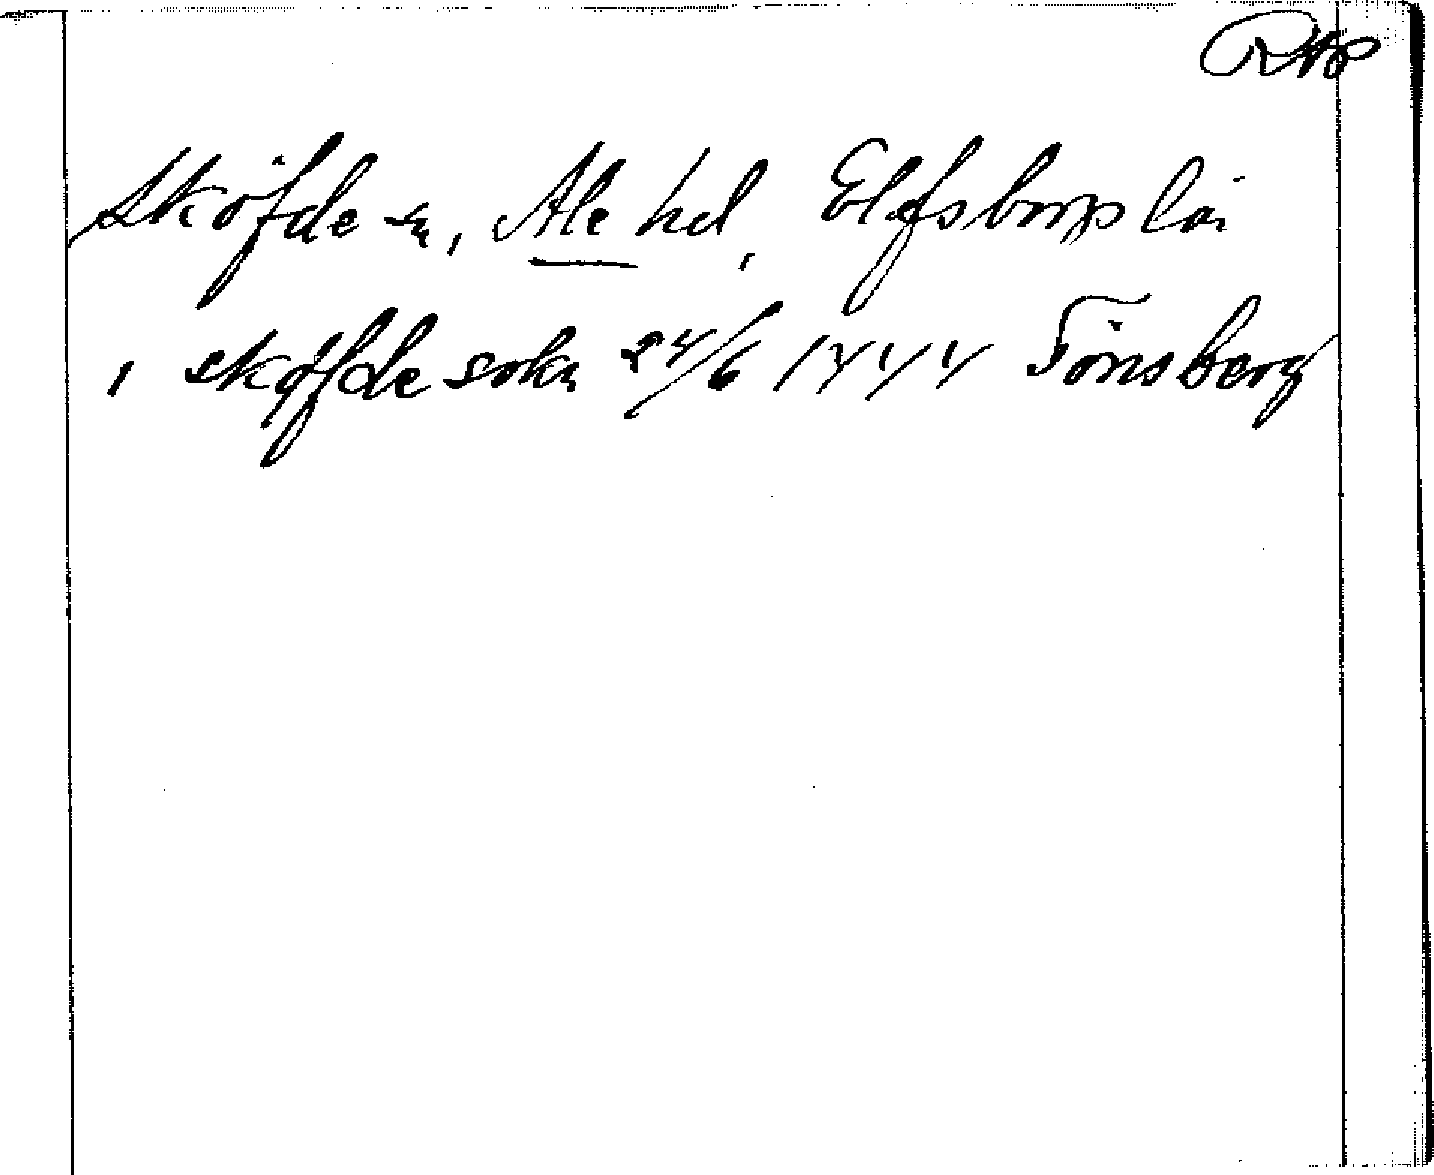 Sköfde sn, Ale hd, Elfsborgs län
i sköfde sokn 24/6 1444 Tönsberg